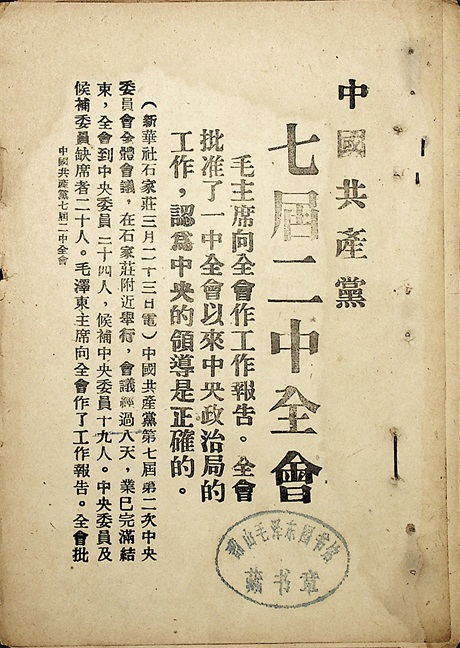 中國共產黨
七届二中全會
毛主席向全會作工作報告。全會
批准了一中全會以來中央政治局的
工作，認爲中央的領導是正確的。
（新華社石家莊三月二十三日電）中國共產黨第七届第二次中央
委員會全體會議，在石家莊附近舉行，會議經過八天，業已完滿結
束，全會到中央委員二十四人，候補中央委員十九人。中央委員及
候補委員缺席者二十人。毛澤東主席向全會作了工作報告。全會批
中國共產黨七届二中全會
韶山毛泽东圖书馆
藏书章